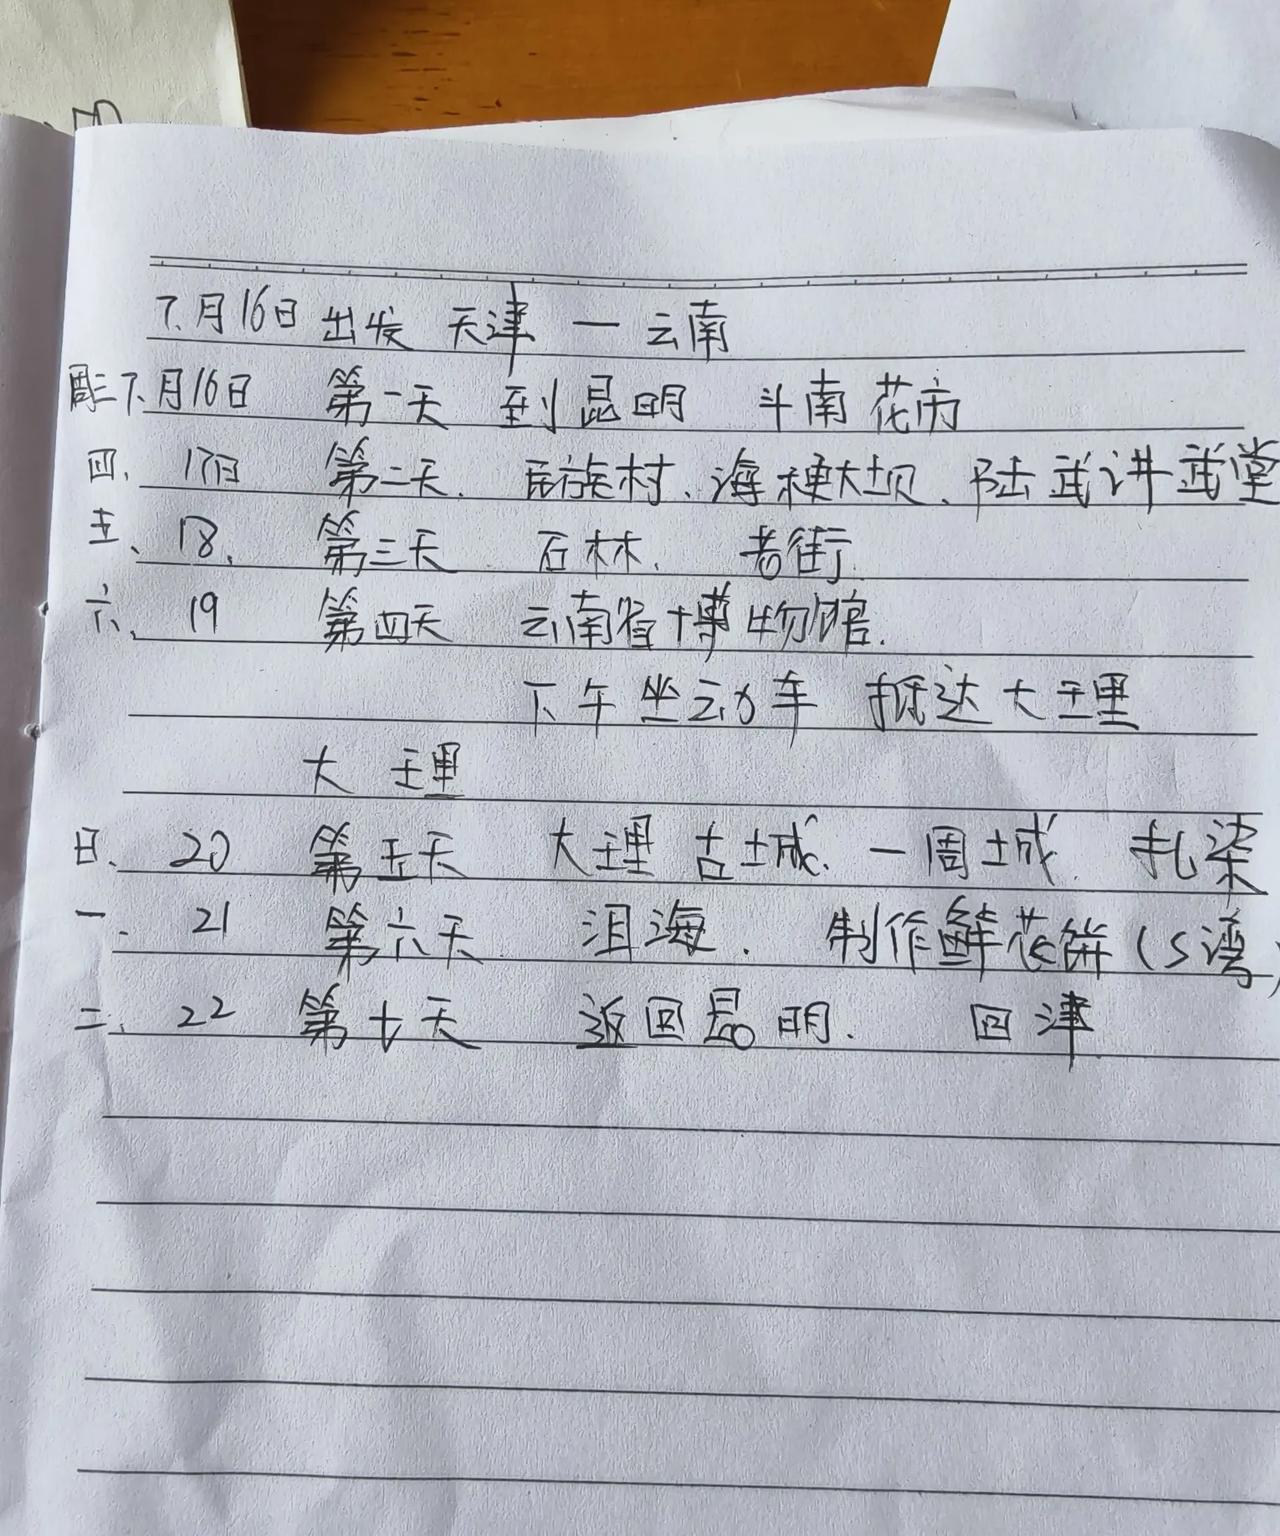 7.月16日 出发 天津 — 云南
周三 7.月16日 第一天 到昆明 斗南花市
四、 17日 第二天. 民族村、海埂大坝、陆武讲武堂
五、 18、 第三天 石林. 老街
六、 19 第四天 云南省博物馆.
下午坐动车 抵达大理
大理
日、 20 第五天 大理古城. 一周城. 扎染
一. 21 第六天 洱海. 制作鲜花饼(S湾)
二、 22 第七天 返回昆明. 回津